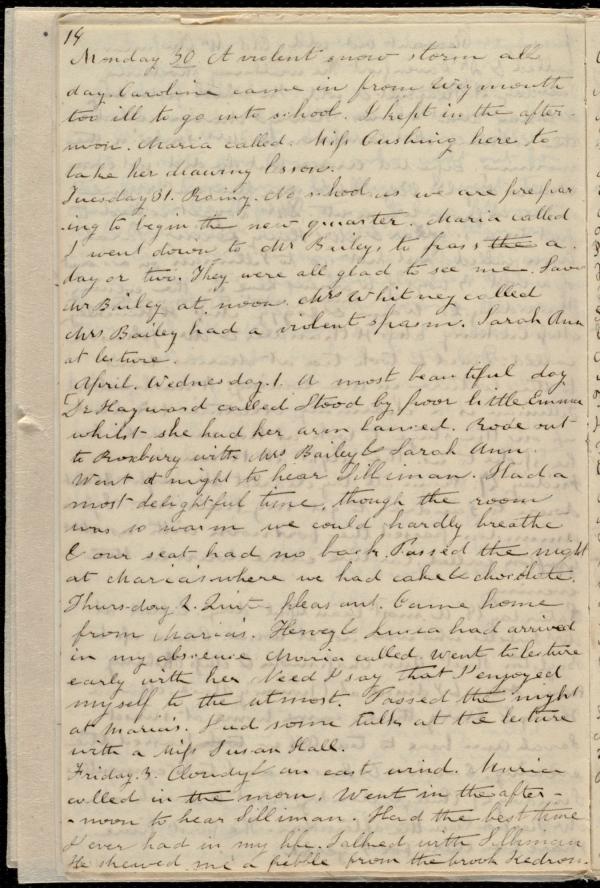 14
Monday 30 A violent snow storm all
day. Caroline came in from Weymouth
too ill to go into school. I kept in the after-
noon. Maria called. Miss Cushing here to
take her drawing lesson.
Tuesday 31. Rainy. No school as we are prepar
-ing to begin the new quarter. Maria called
I went down to Mr Baileys to pass the a
day or two. They were all glad to see me. Saw
Mr Bailey at noon. Mrs Whitney called
Mrs Bailey had a violent spasm. Sarah Ann
at lecture.
April. Wednesday. 1. A most beautiful day
Dr Hayward called Stood by poor little Emma
whilst she had her arm lanced. Rode out
to Roxbury with Mrs Bailey & Sarah Ann.
Went at night to hear Silliman. Had a
most delightful time, though the room
was so warm we could hardly breathe
& our seat had no back. Passed the night
at Maria's where we had cake & chocolate.
Thursday 2. Quite pleasant. Came home
from Maria's. & had arrived
in my abscence Maria called. Went to lecture
early with her Need I say that I enjoyed
myself to the utmost. Passed the night
at Maria's. Had some talk at the lecture
with a Miss Susan Hall.
Friday. 3. Cloudy & an east wind. Maria
called in the morn. Went in the after-
-noon to hear Silliman. Had the best time
I ever had in my life. Talked with Silliman
He shewed me a pebble from the brook Kedron.